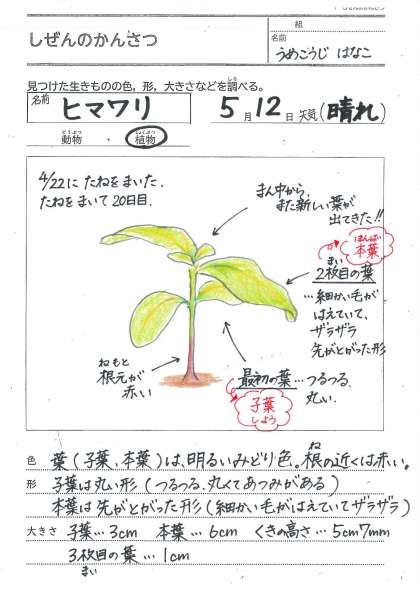 しぜんのかんさつ
組
名前
うめこうじ はなこ
見つけた生きものの色，形，大きさなどを調べる。
しら
名前
ヒマワリ
5月12日 天気(晴れ)
どうぶつ しょくぶつ
動物 ・ 植物
4/22に たねをまいた．
たねをまいて20日目．
まん中から、
また新しい葉が
出てきた!!
ほんばい
本葉
まい
2枚目の葉
…細かい毛が
はえていて、
ザラザラ
先がとがった形
ねもと
根元が
赤い
最初の葉…つるつる．
丸い．
子葉
しよう
色 葉(子葉、本葉)は、明るいみどり色。根の近くは赤い。
ね
形 子葉は丸い形(つるつる．丸くてあつみがある)
本葉は先がとがった形(細かい毛がはえていてザラザラ)
大きさ 子葉…3cm 本葉…6cm くきの高さ…5cm7mm
3枚目の葉…1cm
まい